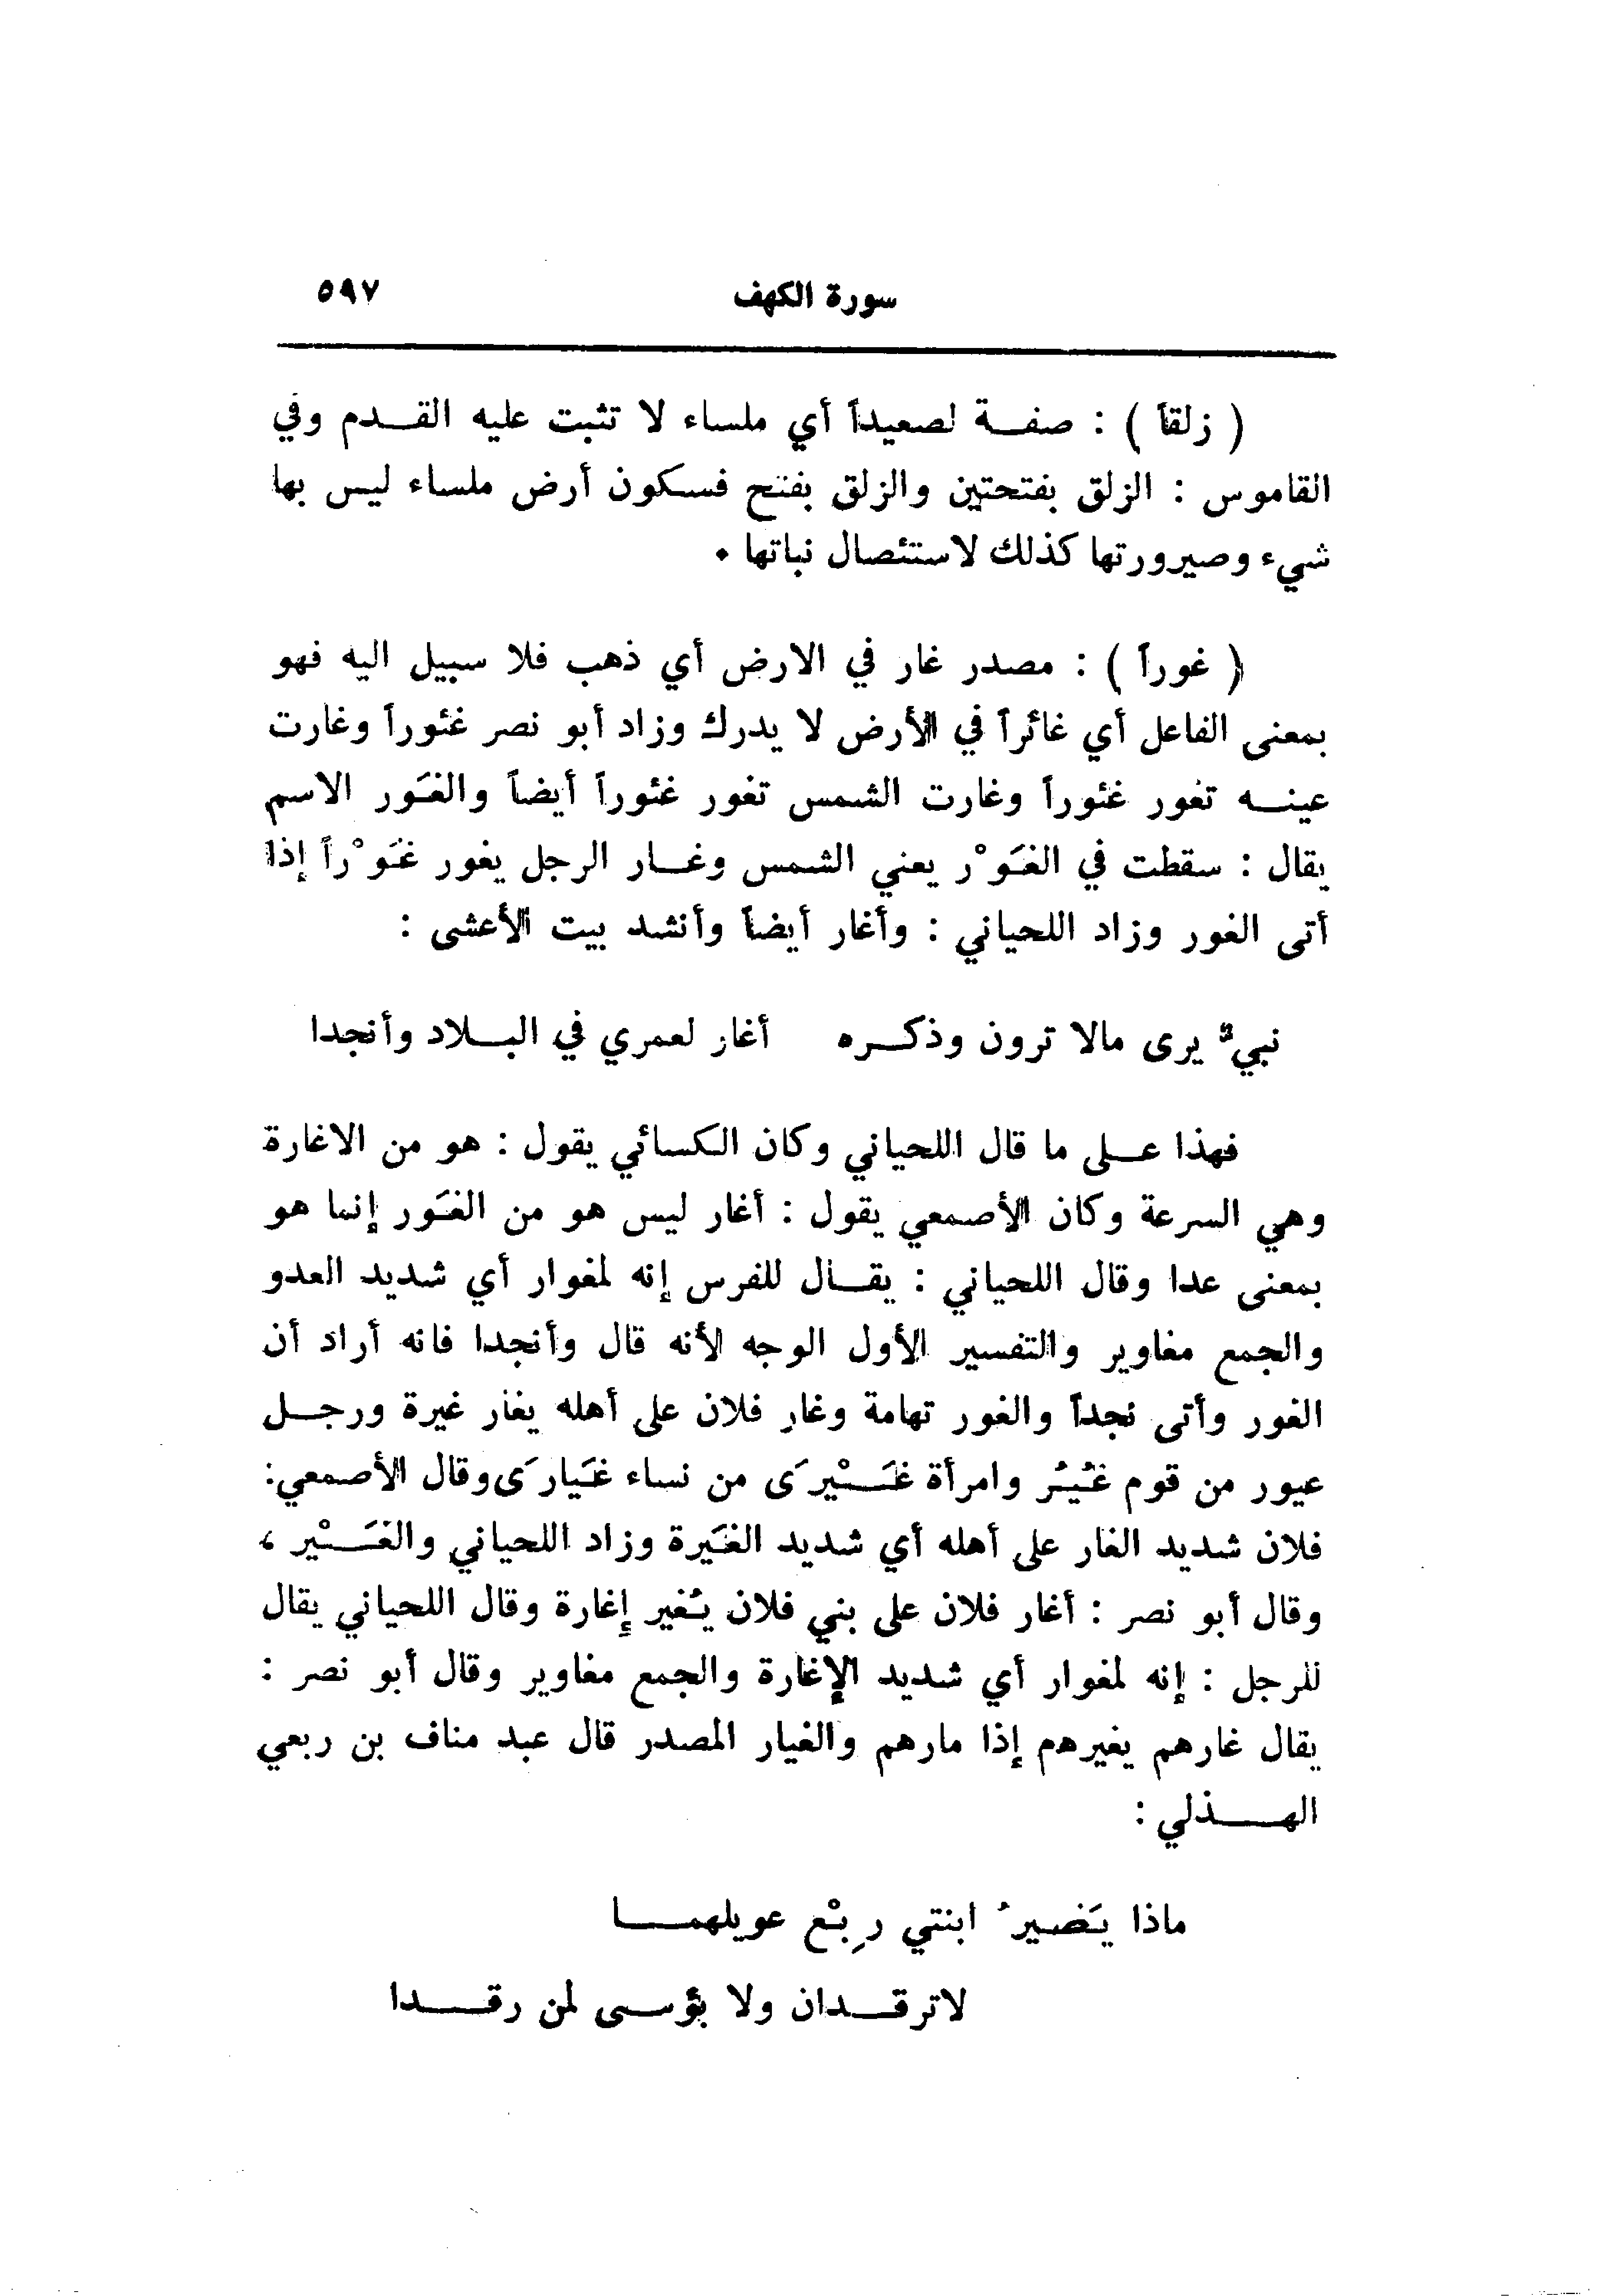 سورة الكهف ٥٩٧
( زلقاً ) : صفة لصعيداً أي ملساء لا تثبت عليه القدم وفي
القاموس : الزلق بفتحتين والزلق بفتح فسكون أرض ملساء ليس بها
شيء وصيرورتها كذلك لاستئصال نباتها .
( غوراً ) : مصدر غار في الارض أي ذهب فلا سبيل اليه فهو
بمعنى الفاعل أي غائراً في الأرض لا يدرك وزاد أبو نصر غئوراً وغارت
عينه تغور غئوراً وغارت الشمس تغور غئوراً أيضاً والغَور الاسم
يقال : سقطت في الغَوْر يعني الشمس وغار الرجل يغور غَوْراً إذا
أتى الغور وزاد اللحياني : وأغار أيضاً وأنشد بيت الأعشى :
نبيٌّ يرى مالا ترون وذكره أغار لعمري في البلاد وأنجدا
فهذا على ما قال اللحياني وكان الكسائي يقول : هو من الاغارة
وهي السرعة وكان الأصمعي يقول : أغار ليس هو من الغَور إنما هو
بمعنى عدا وقال اللحياني : يقال للفرس إنه لمغوار أي شديد العدو
والجمع مغاوير والتفسير الأول الوجه لأنه قال وأنجدا فانه أراد أن
الغور وأتى نجداً والغور تهامة وغار فلان على أهله يغار غيرة ورجل
عيور من قوم غُيُر وامرأة غَيْرَى من نساء غَيارَى وقال الأصمعي:
فلان شديد الغار على أهله أي شديد الغَيرة وزاد اللحياني والغَيْر ،
وقال أبو نصر : أغار فلان على بني فلان يُغير إغارة وقال اللحياني يقال
للرجل : إنه لمغوار أي شديد الإغارة والجمع مغاوير وقال أبو نصر :
يقال غارهم يغيرهم إذا مارهم والغيار المصدر قال عبد مناف بن ربعي
الهذلي :
ماذا يَضيرُ ابنتي رِبْع عويلهما
لاترقدان ولا بؤسى لمن رقدا